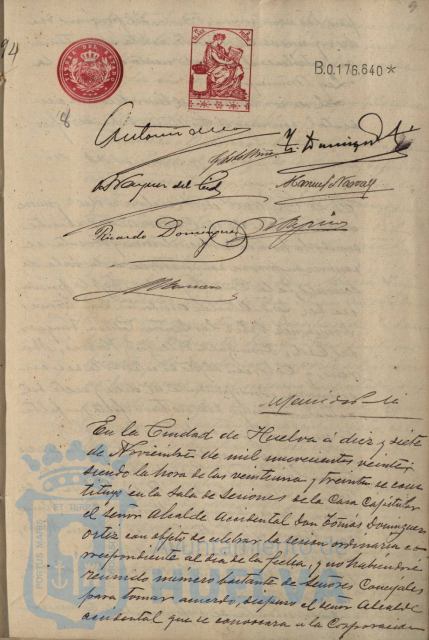 94
9
TIMBRE DEL ESTADO
B.0.176.640*
8
Antonio
T. Domínguez
Vázquez del Cid
Manuel Narváez
Ricardo Domínguez
En la Ciudad de Huelva á diez y siete
de Noviembre de mil novecientos veinte,
siendo la hora de las veintiuna y treinta se cons
tituyó en la Sala de Sesiones de la Casa Capitular
el señor Alcalde Accidental Don Tomás Domínguez
Ortiz con objeto de celebrar la sesion ordinaria co
rrespondiente al dia de la fecha, y no habiendose
reunido numero bastante de Señores Concejales
para tomar acuerdo, dispuso el señor Alcalde
accidental que se convocara a la Corporacion
PORTUS MARIS
ET TERRAE
HUELVA